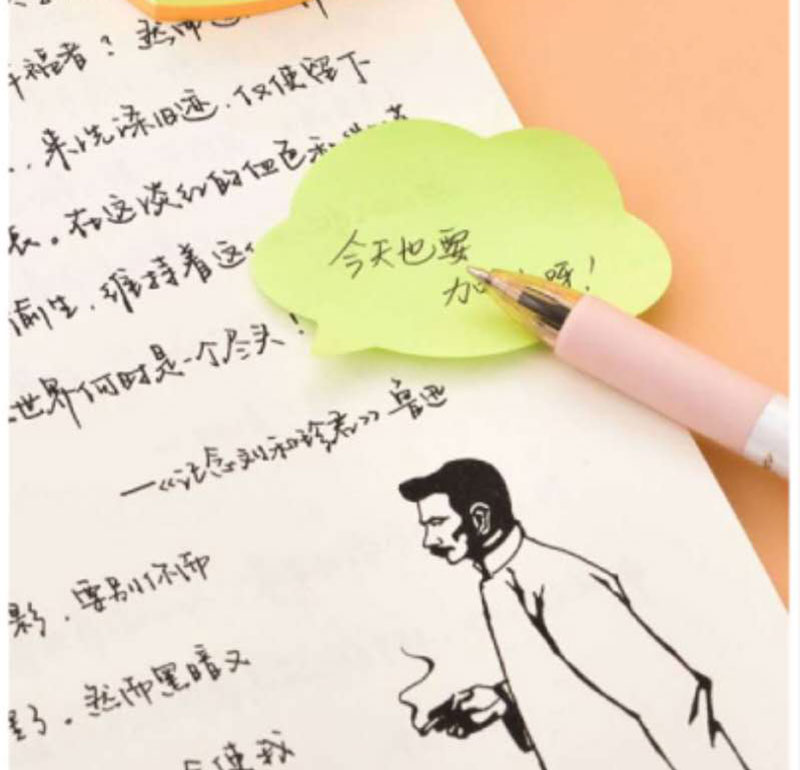 福者？然而
来洗涤旧迹，仅使留下
。在这淡红的血色和
今天也要
加 呀！
偷生，维持着这
世界何时是一个尽头！
—《记念刘和珍君》鲁迅
影，要别你而
影。然而黑暗又
会使我